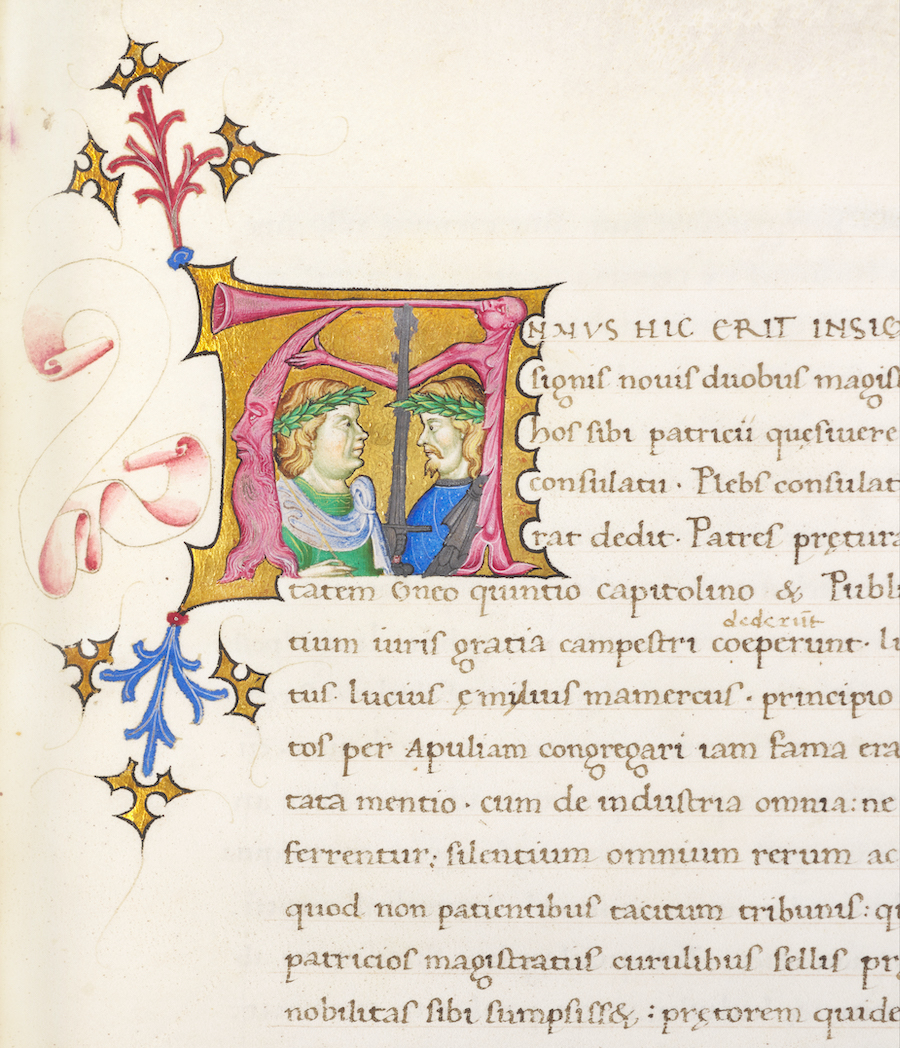 ANNVS HIC ERIT INSIG
signis nouis duobus magis
hos sibi patricii quęsiuere
consulatu · Plebs consulat
rat dedit · Patres prętura
tatem Gneo quintio capitolino & Publi
dederūt
tium iuris gratia campestri coeperunt · lu
tus · lucius ęmilius mamercus · principio
tos per Apuliam congregari iam fama era
tata mentio · cum de industria omnia: ne
ferrentur; silentium omnium rerum ac
quod non patientibus tacitum tribunis: qu
patricios magistratus curulibus sellis pr
nobilitas sibi sumpsiss& : prętorem quide